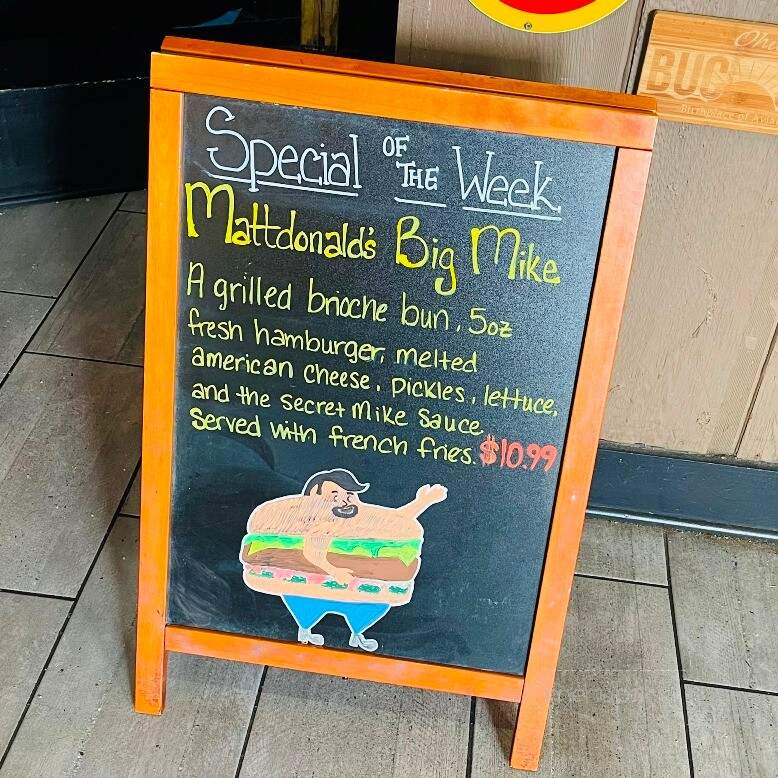 Special OF THE Week
Mattdonald's Big Mike
A grilled brioche bun, 5oz
fresh hamburger, melted
american cheese, pickles, lettuce,
and the secret Mike Sauce.
Served with french fries. $10.99
Ohi
BUC
Birthplace of Avia